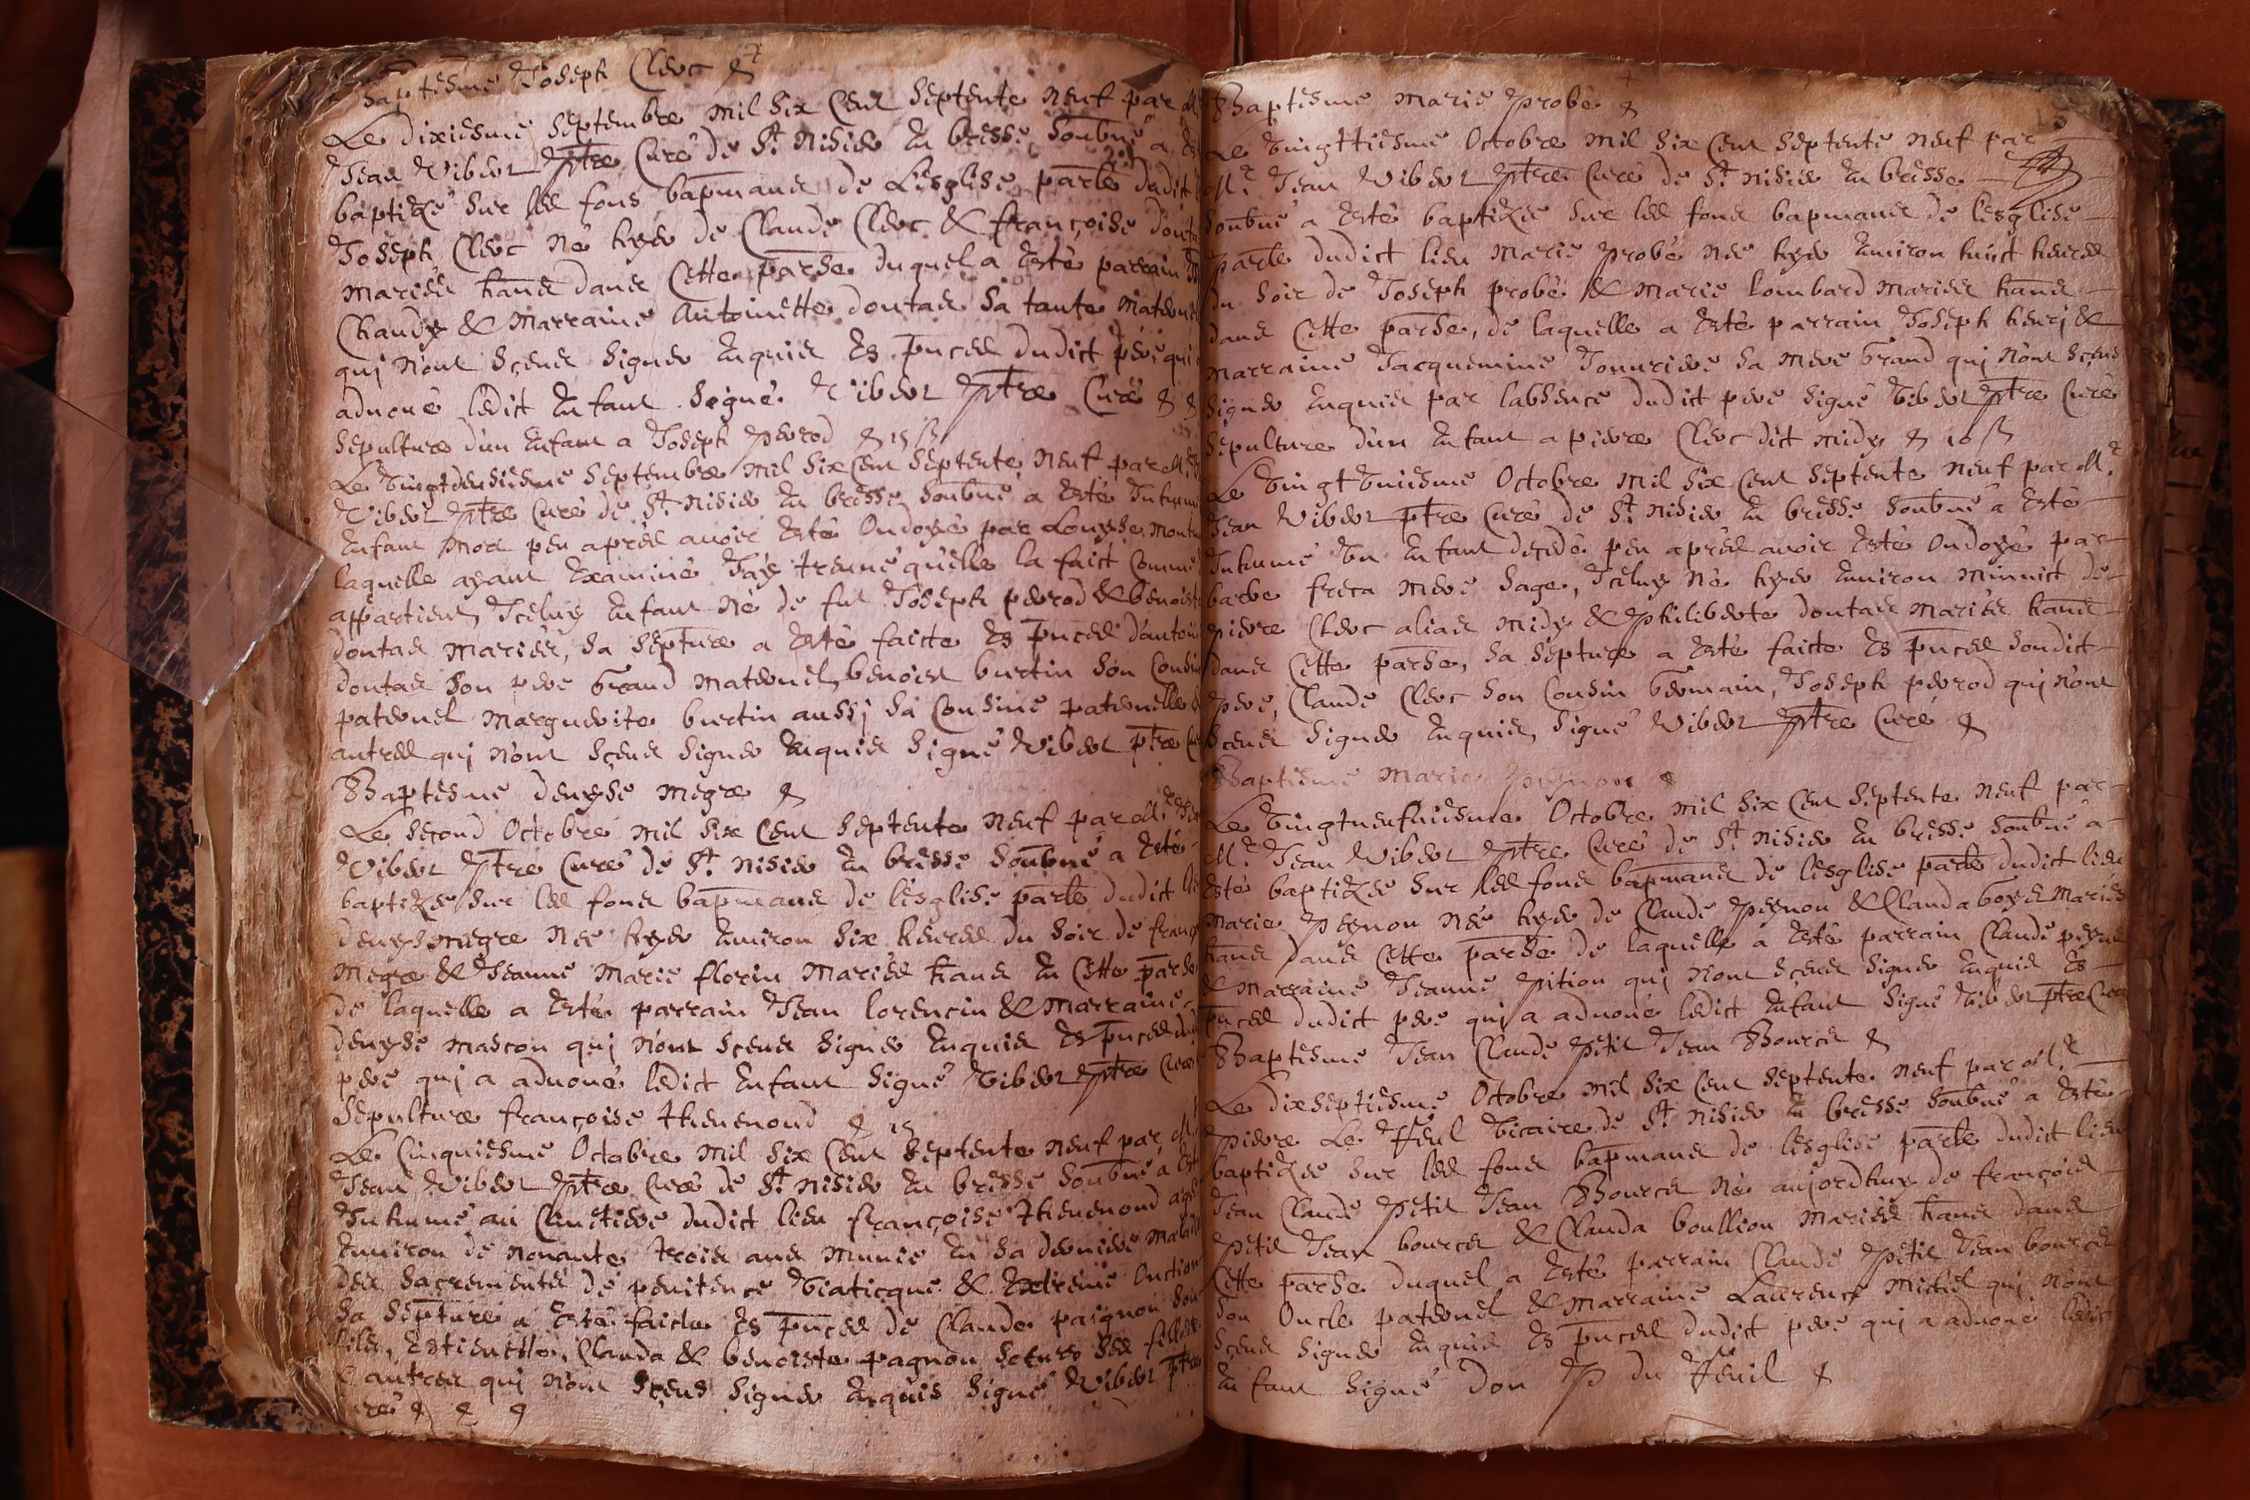 Baptesme Joseph Clerc &
Le dixiesme Septembre mil six cent septente neuf par Mr
Jean Vibert ptre Curé de St Nisier en bresse soubné a
baptizé sur les fons bapmaus de Lesglise parle dudict
Joseph Clerc né hyer de Claude Clerc & françoise
mariés hans dans Cette parse duquel a esté parrain
Chandy & marraine Antoinette doutas sa tante maternel
qui nont sceus signer enquis Es pnces dudict père qui
aduoué ledict enfant signé Vibert ptre Curé & &
Sepulture dun enfant a Joseph perrod & 15 s
Le vingtdeusiesme Septembre mil six cent septente neuf par Mr
Vibert ptre Curé de St Nisier en bresse soubné a esté Inhumé
enfant mort peu après auoir esté Ondoyé par Louyse
laquelle ayant examiné Jay treuué quelle la faict comme
appartient, Iceluy enfant né de fut Joseph perrod & benoiste
doutas mariés, sa septure a esté faicte Es pnces dantoi
doutas son père grand maternel, benoist burtin son Cousin
paternel marguerite burtin aussj sa Cousine paternelle
autres qui nont sceus signer enquis signé Vibert ptre
Baptesme denyse megre &
Le second Octobre mil six cent septente neuf par Mr
Vibert ptre Curé de St Nisier en bresse soubné a esté
baptizée sur les fons bapmaus de lesglise parle dudict
denyse megre née hyer enuiron six heures du soir de
megre & Jeanne marie florin mariés hans en Cette parse
de laquelle a esté parrain Jean lorencin & marraine
denyse mascon qui nont sceus signer enquis Es pnces
père qui a aduoué ledict enfant signé Vibert ptre Curé
Sepulture françoise theuenond & 15
Le Cinquiesme Octobre mil six cent septente neuf par Mr
Jean Vibert ptre Curé de St Nisier en bresse soubné a
Inhumé au Cimetiere dudict lieu françoise theuenond
enuiron de nonante trois ans munie en sa derniere
des sacrements de penitence viaticque & extreme Onction
sa septure a esté faicte Es pnces de Claude pagnon son
fils, Estiennette, Clauda & benoiste pagnon ses filles
autres qui nont sceus signer enquis signé Vibert ptre
& & &
Baptesme marie probé &
Le vingttiesme Octobre mil six cent septente neuf par
Mr Jean Vibert ptre Curé de St Nisier en bresse
soubné a esté baptizée sur les fons bapmaus de lesglise
parle dudict lieu marie probé née hyer enuiron huict heures
du soir de Joseph probé & marie lombard mariés hans
dans Cette parse, de laquelle a esté parrain Joseph henrj &
marraine Jacquemine sa mere grand qui nont sceus
signer enquis par labsence dudict père signé Vibert ptre Curé
Sepulture dun enfant a pierre Clerc dict midy & 10 s
Le vingtvniesme Octobre mil six cent septente neuf par Mr
Jean Vibert ptre Curé de St Nisier en bresse soubné a esté
Inhumé vn enfant decedé peu après auoir esté ondoyé par
barbe mere sage, Iceluy né hyer enuiron minuict de
pierre Clerc alias midy & philiberte doutas mariés hans
dans Cette parse, sa septure a esté faicte Es pnces dondict
père, Claude Clerc son Cousin germain, Joseph perrod qui nont
sceus signer enquis, signé Vibert ptre Curé &
Baptesme marie &
Le vingtneufuiesme Octobre mil six cent septente neuf par
Mr Jean Vibert ptre Curé de St Nisier en bresse soubné a
esté baptizée sur les fons bapmaus de lesglise parle dudict lieu
marie peynon née hyer de Claude peynon & Clauda goyet mariés
hans dans Cette parse de laquelle a esté parrain Claude
& marraine Jeanne pition qui nont sceus signer enquis Es
pnces dudict père qui a aduoué ledict enfant signé Vibert ptre Curé
Baptesme Jean Claude petit Jean Bource &
Le dixseptiesme Octobre mil six cent septente neuf par Mr
pierre Le vicaire de St Nisier en bresse soubné a esté
baptizée sur les fons bapmaus de lesglise parle dudict lieu
Jean Claude petit Jean Bource né aujordhuy de françois
petit Jean bource & Clauda boullion mariés hans dans
Cette parse duquel a esté parrain Claude petit Jean bource
son Oncle paternel & marraine Laurence michel qui nont
sceus signer enquis Es pnces dudict père qui a aduoué ledict
enfant signé